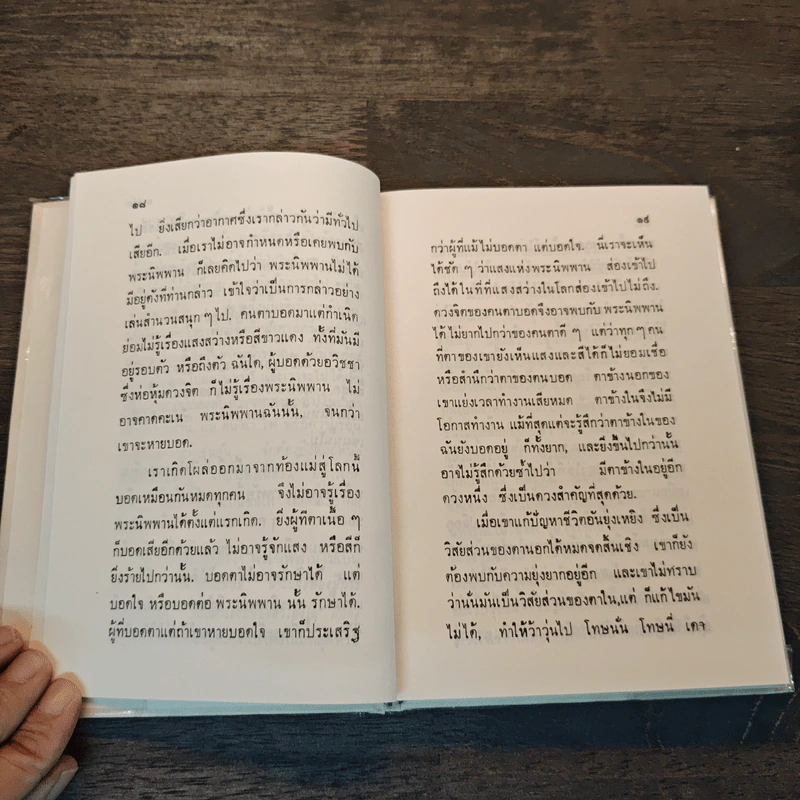 ๑๘
ไป ยิ่งเสียกว่าอากาศซึ่งเรากล่าวกันว่ามีทั่วไป
เสียอีก. เมื่อเราไม่อาจกำหนดหรือเคยพบกับ
พระนิพพาน ก็เลยคิดไปว่า พระนิพพานไม่ได้
มีอยู่ดังที่ท่านกล่าว เข้าใจว่าเป็นการกล่าวอย่าง
เล่นสำนวนสนุก ๆ ไป. คนตาบอดมาแต่กำเนิด
ย่อมไม่รู้เรื่องแสงสว่างหรือสีขาวแดง ทั้งที่มันมี
อยู่รอบตัว หรือถึงตัว ฉันใด, ผู้บอดด้วยอวิชชา
ซึ่งห่อหุ้มดวงจิต ก็ไม่รู้เรื่องพระนิพพาน ไม่
อาจคาดคะเน พระนิพพานฉันนั้น, จนกว่า
เขาจะหายบอด.
เราเกิดโผล่ออกมาจากท้องแม่สู่โลกนี้
บอดเหมือนกันหมดทุกคน จึงไม่อาจรู้เรื่อง
พระนิพพานได้ตั้งแต่แรกเกิด. ยิ่งผู้ที่ตาเนื้อ ๆ
ก็บอดเสียอีกด้วยแล้ว ไม่อาจรู้จักแสง หรือสีก็
ยิ่งร้ายไปกว่านั้น. บอดตาไม่อาจรักษาได้ แต่
บอดใจ หรือบอดต่อ พระนิพพาน นั้น รักษาได้.
ผู้ที่บอดตาแต่ถ้าเขาหายบอดใจ เขาก็ประเสริฐ
๑๙
กว่าผู้ที่แม้ไม่บอดตา แต่บอดใจ. นี่เราจะเห็น
ได้ชัด ๆ ว่าแสงแห่งพระนิพพาน ส่องเข้าไป
ถึงได้ ในที่ที่แสงสว่างในโลกส่องเข้าไปไม่ถึง.
ดวงจิตของคนตาบอดจึงอาจพบกับ พระนิพพาน
ได้ ไม่ยากไปกว่าของคนตาดี ๆ แต่ว่าทุก ๆ คน
ที่ตาของเขายังเห็นแสงและสีได้ก็ไม่ยอมเชื่อ
หรือสำนึกว่าตาของตนบอด ตาข้างนอกของ
เขาแย่งเวลาทำงานเสียหมด ตาข้างในจึงไม่มี
โอกาสทำงาน แม้ที่สุดแต่จะรู้สึกว่าตาข้างในของ
ฉันยังบอดอยู่ ก็ทั้งยาก, และยิ่งขึ้นไปกว่านั้น
อาจไม่รู้สึกด้วยซ้ำไปว่า มีตาข้างในอยู่อีก
ดวงหนึ่ง ซึ่งเป็นดวงสำคัญที่สุดด้วย.
เมื่อเขาแก้ปัญหาชีวิตอันยุ่งเหยิง ซึ่งเป็น
วิสัยส่วนของตานอกได้หมดจดสิ้นเชิง เขาก็ยัง
ต้องพบกับความยุ่งยากอยู่อีก และเขาไม่ทราบ
ว่านั่นมันเป็นวิสัยส่วนของตาใน, แต่ ก็แก้ไขมัน
ไม่ได้, ทำให้ว้าวุ่นไป โทษนั่น โทษนี่ เดา